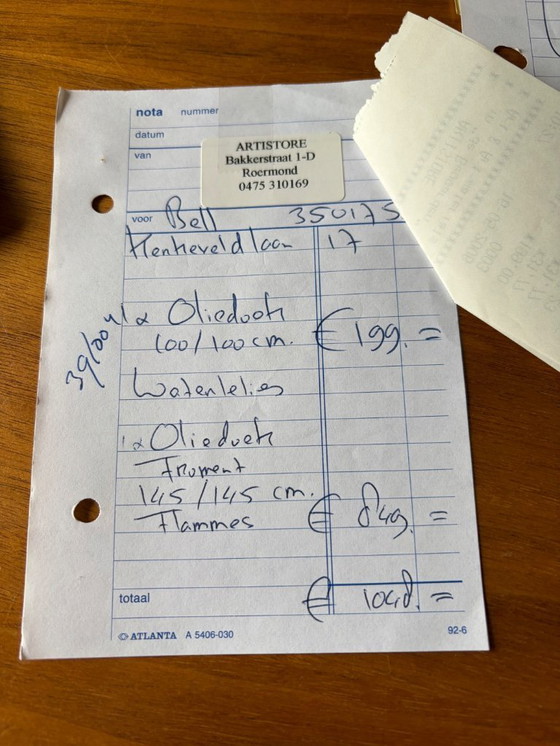 nota nummer
datum
van
ARTISTORE
Bakkerstraat 1-D
Roermond
0475 310169
voor Bell 350175
Henkeveldlaan 17
1x Oliedoek
100/100 cm. € 199. =
Waterlelies
1x Oliedoek
Froment
145/145 cm.
Flammes € 849. =
totaal € 1048. =
© ATLANTA A 5406-030 92-6